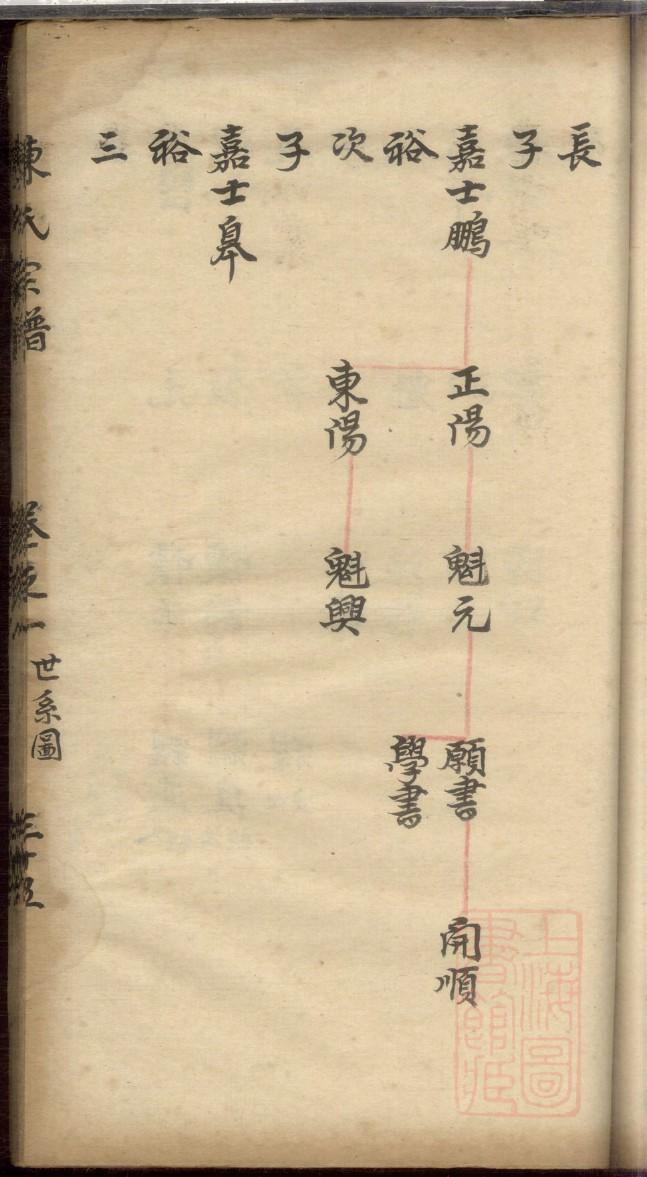 長
子
嘉士鵬 正陽 魁元 願書 開順
裕 學書
次 東陽 魁興
子
嘉士皋
裕
三
陳氏宗譜 世系圖
上海圖
書館藏